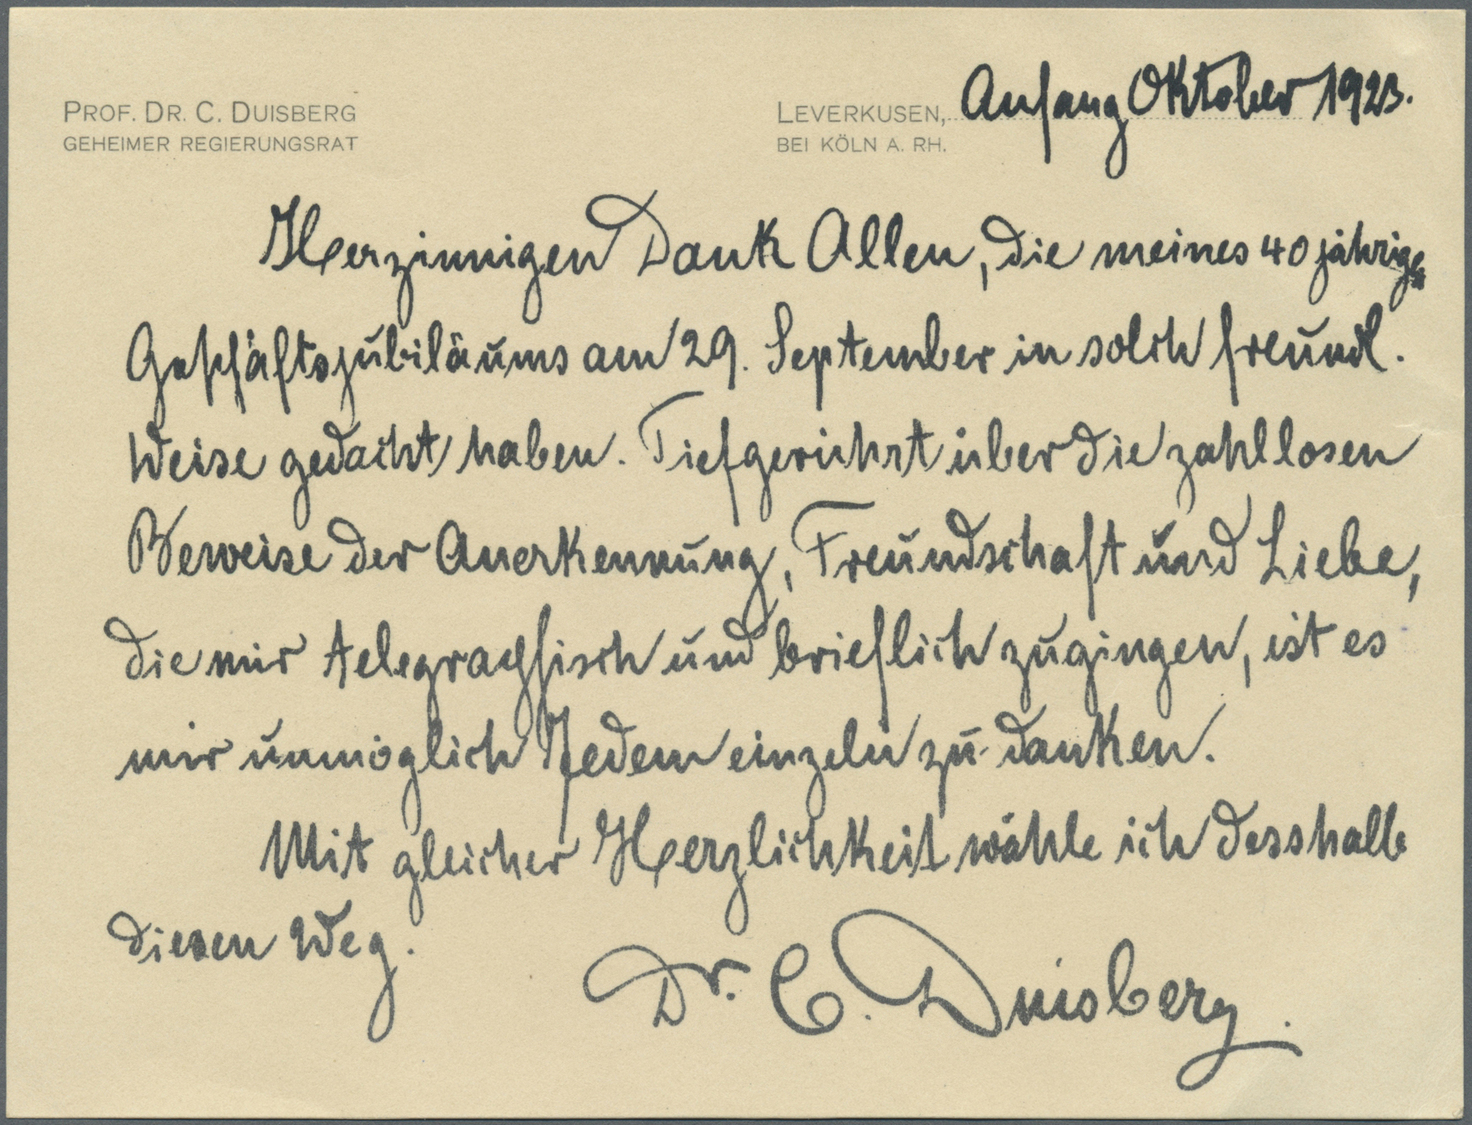 PROF. DR. C. DUISBERG
GEHEIMER REGIERUNGSRAT
LEVERKUSEN, Anfang Oktober 1923.
BEI KÖLN A. RH.
Herzinnigen Dank Allen, die meines 40 jährigen
Geschäftsjubiläums am 29. September in solch freundl.
Weise gedacht haben. Tiefgerührt über die zahllosen
Beweise der Anerkennung, Freundschaft und Liebe,
die mir telegraphisch und brieflich zugingen, ist es
mir unmöglich Jedem einzeln zu danken.
Mit gleicher Herzlichkeit wähle ich desshalb
diesen Weg.
Dr. C. Duisberg.